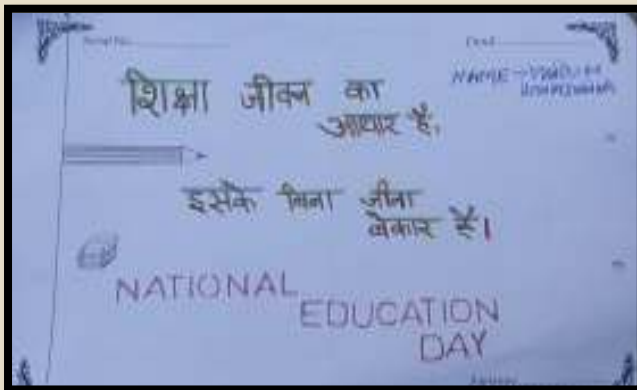 NAME -
शिक्षा जीवन का
आधार है,
इसके बिना जीना
बेकार है।
NATIONAL
EDUCATION
DAY